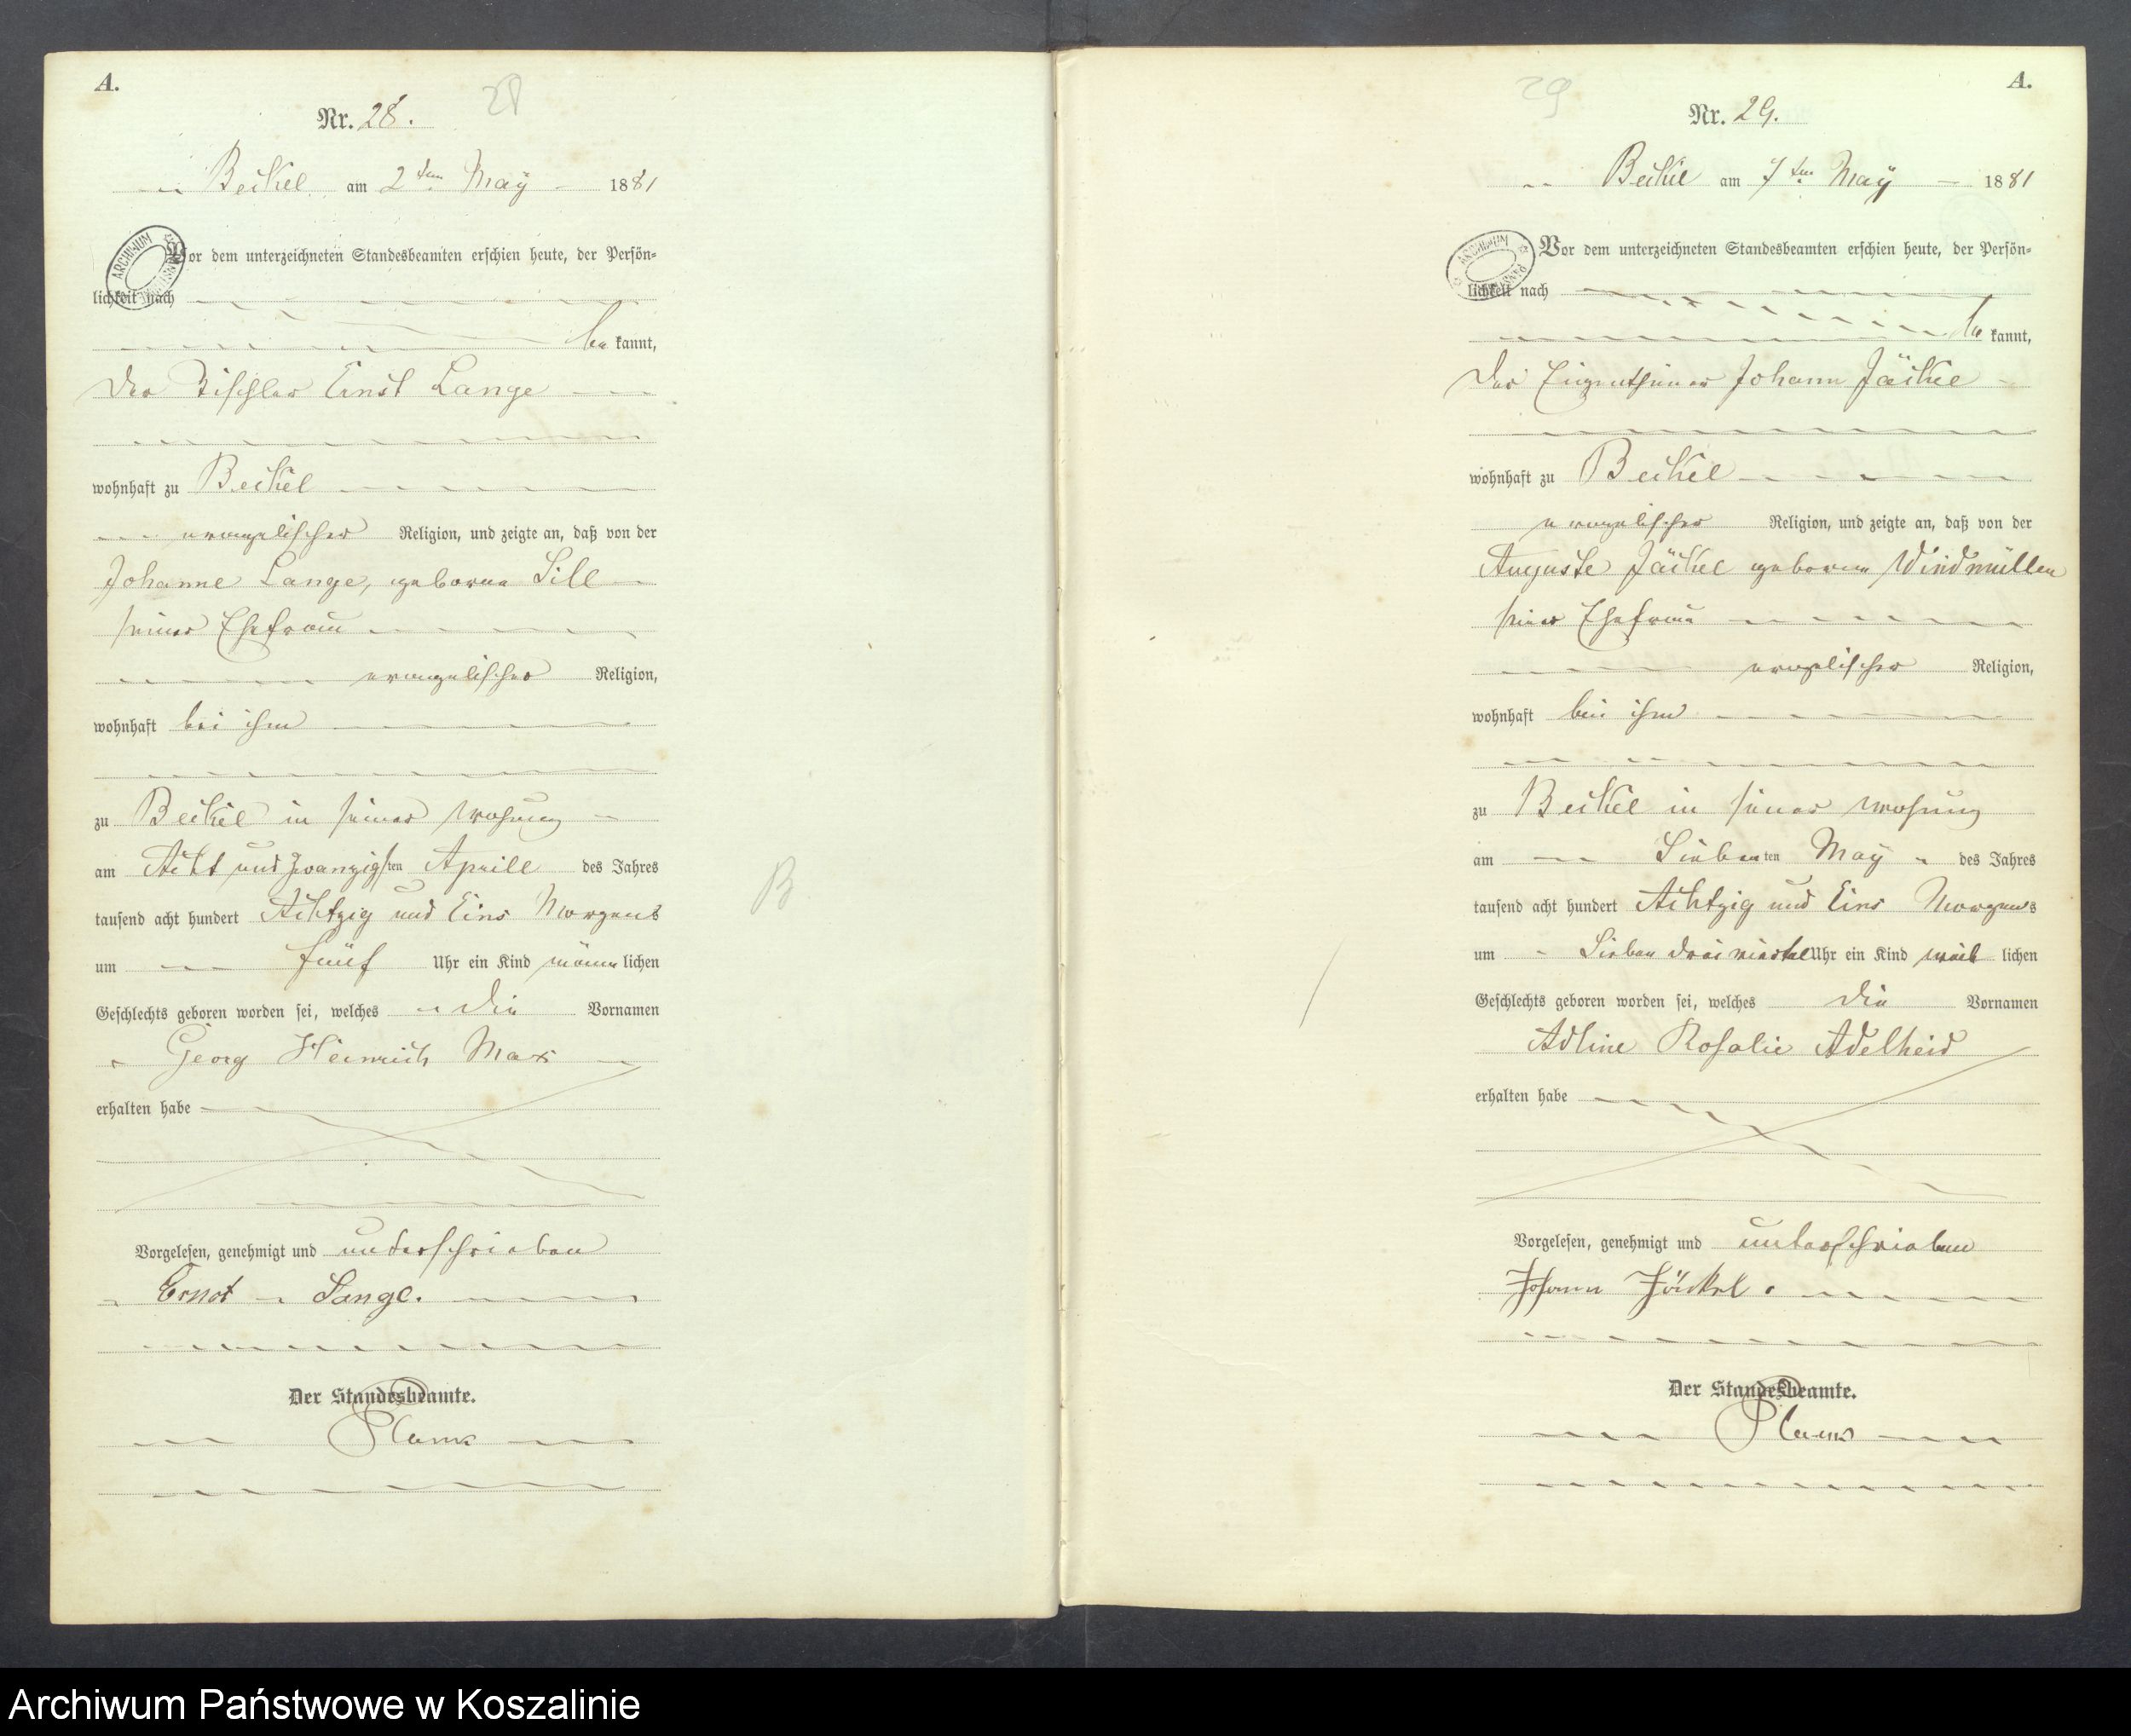 A.
28
Nr. 28.
Beikel am 2ten May 1881
ARCHIWUM
Vor dem unterzeichneten Standesbeamten erschien heute, der Persön-
lichkeit nach
be kannt,
der Tischler Ernst Lange
wohnhaft zu Beikel
evangelischer Religion, und zeigte an, daß von der
Johanne Lange, geborne Sill
seiner Ehefrau
evangelischer Religion,
wohnhaft bei ihm
zu Beikel in seiner Wohnung
am Acht und Zwanzigsten Aprill des Jahres
tausend acht hundert Achtzig und Eins Morgens
um fünf Uhr ein Kind männ lichen
Geschlechts geboren worden sei, welches die Vornamen
Georg Heinrich Max
erhalten habe
Vorgelesen, genehmigt und unterschrieben
Ernst Lange.
Der Standesbeamte.
B
A.
29
Nr. 29.
Beikel am 7ten May 1881
ARCHIWUM
Vor dem unterzeichneten Standesbeamten erschien heute, der Persön-
lichkeit nach
be kannt,
Der Eigenthümer Johann Jäckel
wohnhaft zu Beikel
evangelischer Religion, und zeigte an, daß von der
Auguste Jäckel geborne Windmüller
seiner Ehefrau
evangelischer Religion,
wohnhaft bei ihm
zu Beikel in seiner Wohnung
am Siebenten May des Jahres
tausend acht hundert Achtzig und Eins Morgens
um Sieben drei viertel Uhr ein Kind weib lichen
Geschlechts geboren worden sei, welches die Vornamen
Adline Rosalie Adelheid
erhalten habe
Vorgelesen, genehmigt und unterschrieben
Johann Jäckel.
Der Standesbeamte.
Archiwum Państwowe w Koszalinie